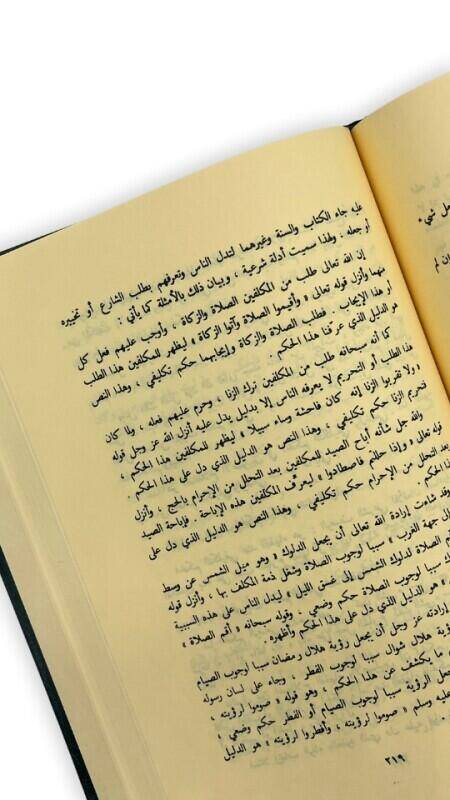 عليه جاء الكتاب والسنة وغيرهما لتدل الناس وتعرفهم بطلب الشارع أو تخييره
أو جعله ، ولهذا سميت أدلة شرعية ، وبيان ذلك بالأمثلة كما يأتي :
إن الله تعالى طلب من المكلفين الصلاة والزكاة ، وأوجب عليهم فعل كل
منهما وأنزل قوله تعالى « وأقيموا الصلاة وآتوا الزكاة » ليظهر للمكلفين هذا الطلب
أو هذا الإيجاب . فطلب الصلاة والزكاة وإيجابهما حكم تكليفي ، وهذا النص
هو الدليل الذي عرفنا هذا الحكم .
كما أنه سبحانه طلب من المكلفين ترك الزنا ، وحرم عليهم فعله ، ولما كان
هذا الطلب أو التحريم لا يعرفه الناس إلا بدليل يدل عليه أنزل الله عز وجل قوله
« ولا تقربوا الزنا إنه كان فاحشة وساء سبيلا » ليظهر للمكلفين هذا الحكم ،
فتحريم الزنا حكم تكليفي ، وهذا النص هو الدليل الذي دل على هذا الحكم .
والله جل شأنه أباح الصيد للمكلفين بعد التحلل من الإحرام بالحج ، وأنزل
قوله تعالى « وإذا حللتم فاصطادوا » ليعرف المكلفين هذه الإباحة . فإباحة الصيد
بعد التحلل من الإحرام حكم تكليفي ، وهذا النص هو الدليل الذي دل على
هذا الحكم .
وقد شاءت إرادة الله تعالى أن يجعل الدلوك « وهو ميل الشمس عن وسط
جهة الغرب » سببا لوجوب الصلاة وشغل ذمة المكلف بها ، وأنزل قوله
الصلاة لدلوك الشمس إلى غسق الليل » ليدل الناس على هذه السببية
سببا لوجوب الصلاة حكم وضعي ، وقوله سبحانه « أقم الصلاة »
» هو الدليل الذي دل على هذا الحكم وأظهره .
إرادته عز وجل أن يجعل رؤية هلال رمضان سببا لوجوب الصيام
هلال شوال سببا لوجوب الفطر ، وجاء على لسان رسوله
ما يكشف عن هذا الحكم ، وهو قوله « صوموا لرؤيته ،
الرؤية سببا لوجوب الصيام أو الفطر حكم وضعي ،
عليه وسلم « صوموا لرؤيته ، وأفطروا لرؤيته » هو الدليل
٢١٩